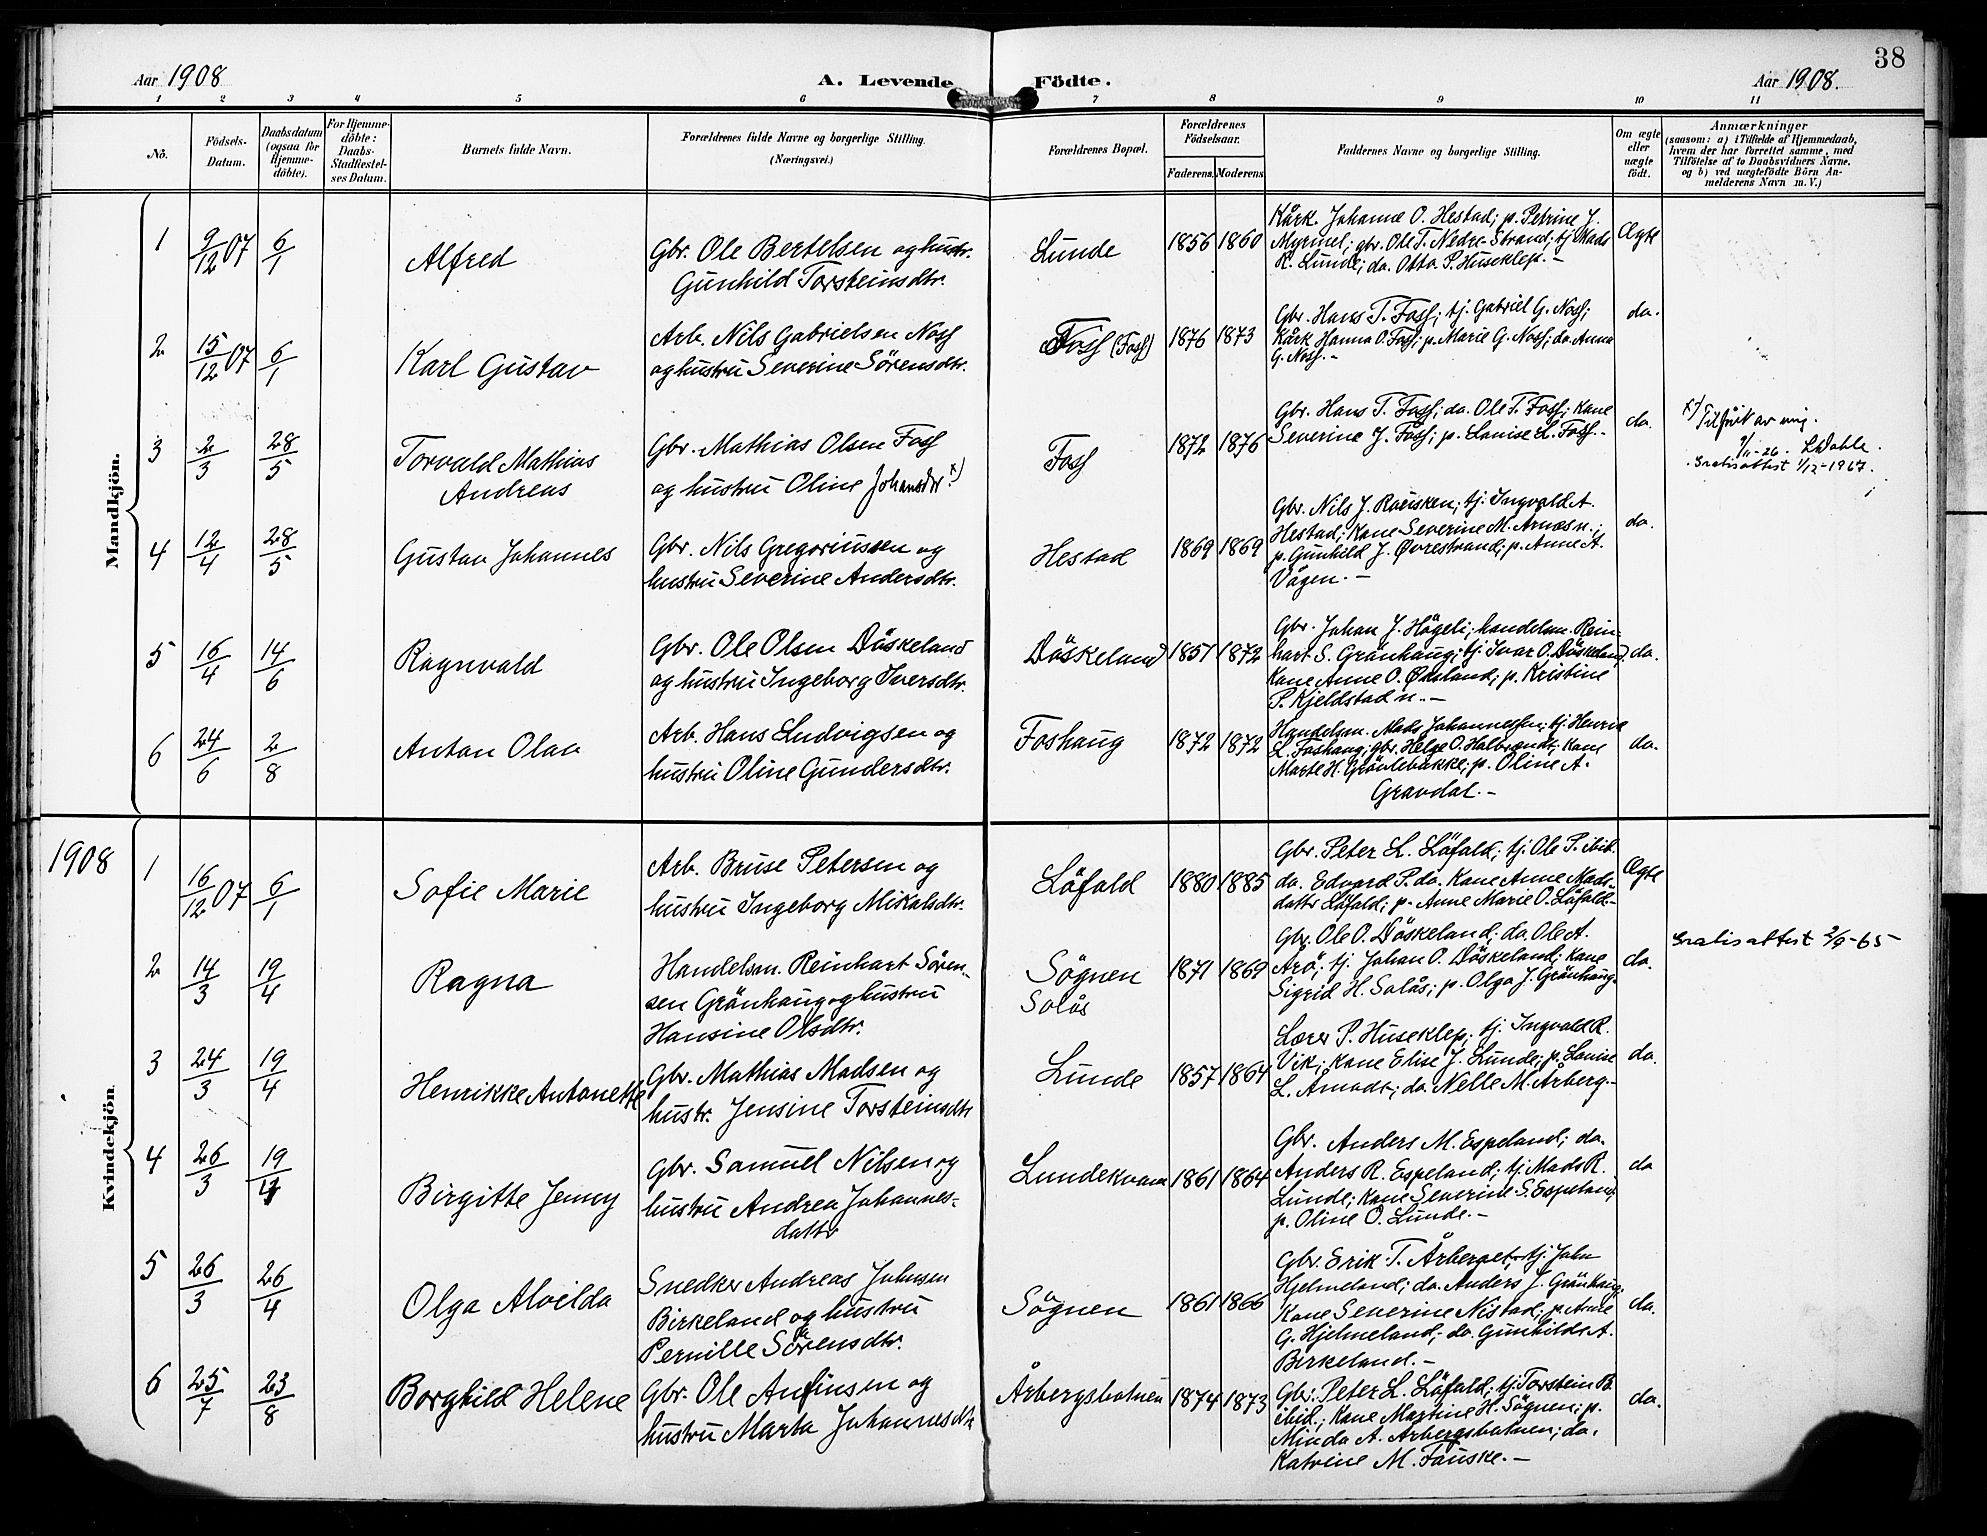 38
Aar 1908
A. Levende Födte.
Aar 1908.
1 2 3 4 5 6 7 8 9 10 11
No.
Födsels-Datum.
Daabsdatum (ogsaa for Hjemme-döbte).
For Hjemme-döbte: Daabs-Stadfæstel-ses Datum.
Barnets fulde Navn.
Forældrenes fulde Navne og borgerlige Stilling.
(Næringsvei.)
Forældrenes Bopæl.
Forældrenes Födselsaar.
Faderens. Moderens
Faddernes Navne og borgerlige Stilling.
Om ægte eller uægte födt.
Anmærkninger
(saasom: a) i Tilfælde af Hjemmedaab,
hvem der har forrettet samme, med
Tilföielse af to Daabsvidners Navne.
og b) ved uægtefödte Börn An-
melderens Navn m. V.)
Mandkjön.
1 9/12 07 6/1 Alfred
Gbr. Ole Bertelsen og hustr.
Gunhild Torsteinsdtr.
Lunde 1856 1860
Kårk. Johanne O. Hestad; p. Petrine J.
Myrmel; gbr. Ole T. Nedre-Strand; tj. Mads
R. Lunde; do. Otto P. Huseklep. -
Ægte
2 15/12 07 6/1 Karl Gustav
Arb. Nils Gabrielsen Noss
og hustru Severine Sörensdtr.
Foss (Foss) 1876 1873
Gbr. Hans T. Foss; tj. Gabriel G. Noss;
Kårk Hanna O. Foss; p. Marie G. Noss; do. Anna
G. Noss. -
do.
3 2/3 28/5 Torvald Mathias
Andreas
Gbr. Mathias Olsen Foss
og hustru Oline Johansdtr. x)
Foss 1872 1876
Gbr. Hans T. Foss; do. Ole T. Foss; Kone
Severine J. Foss; p. Louise L. Foss. -
do.
x) Tilføiet av mig.
1/11-26. LDahle.
Gratisattest 1/12-1967.
4 12/4 28/5 Gustav Johannes
Gbr. Nils Gregoriussen og
hustru Severine Andersdtr.
Hestad 1869 1869
Gbr. Nils J. Rveisken; tj. Ingvald A.
Hestad; Kone Severine M. Arnes n.;
p. Gunhild J. Øvrestrand; p. Anne A.
Vågen. -
do.
5 16/4 14/6 Ragnvald
Gbr. Ole Olsen Döskeland
og hustru Ingeborg Iversdtr.
Döskeland 1851 1872
Gbr. Johan J. Högeli; handelsm. Rein-
hart S. Grönhaug; tj. Ivar O. Döskeland;
Kone Anne O. Øksland; p. Kristine
P. Kjeldstad n. -
do.
6 24/6 2/8 Anton Olav
Arb. Hans Ludvigsen og
hustru Oline Gundersdtr.
Foshaug 1872 1872
Handelsm. Mads Johannessen; tj. Henrik
L. Foshaug; gbr. Helge O. Halbrendt; Kone
Marte H. Grönlebakke; p. Oline A.
Gravdal. -
do.
1908
Kvindekjön
1 16/12 07 6/1 Sofie Marie
Arb. Bruse Petersen og
hustru Ingeborg Mikalsdtr.
Löfald 1880 1885
Gbr. Peter L. Löfald; tj. Ole P. ibid.
do. Edvard P. do. Kone Anne Mads-
datter Löfald; p. Anne Marie O. Löfald. -
Ægte
2 14/3 19/4 Ragna
Handelsm. Reinhart Sören-
sen Grönhaug og hustru
Hansine Olsdtr.
Sögnen
Solås
1871 1869
Gbr. Ole O. Döskeland; do. Ole A.
Arö; tj. Johan O. Döskeland; Kone
Sigrid H. Solås; p. Olga J. Grönhaug.
do.
Gratisattest 2/9-65
3 24/3 19/4 Henrikke Antonette
Gbr. Mathias Madsen og
hustr. Jensine Torsteinsdtr
Lunde 1857 1864
Lærer P. Huseklep; tj. Ingvald R.
Vik; Kone Elise J. Lunde; p. Louise
L. Amodt; do. Nelle M. Årberg. -
do.
4 26/3 19/4 Birgitte Jenny
Gbr. Samuel Nilsen og
hustru Andrea Johannes-
datter
Lundekvam 1861 1864
Gbr. Anders M. Espeland; do.
Anders R. Espeland; tj. Mads R.
Lunde; Kone Severine S. Espeland;
p. Oline O. Lunde. -
do
5 26/3 26/4 Olga Alvilda
Snedker Andreas Johnsen
Birkeland og hustru
Pernille Sörensdtr.
Sögnen 1861 1866
Gbr. Erik T. Årberget; tj. John
Hjelmeland; do. Anders J. Grönhaug;
Kone Severine Nistad; p. Anne
G. Hjelmeland; do. Gunhilda A.
Birkeland. -
do.
6 25/7 23/8 Borghild Helene
Gbr. Ole Anfinsen og
hustru Marta Johannesdtr
Årbergsbotnen 1874 1873
Gbr. Peter L. Löfald; tj. Torstein B.
ibid; Kone Martine H. Sögnen; p.
Minda A. Arbergsbotnen; do.
Katrine M. Fauske. -
do.